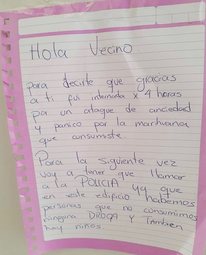 Hola Vecino
para decirte que gracias
a ti fui internada x 4 horas
por un ataque de ansiedad
y panico por la marihuana
que consumiste.
Para la siguiente vez
voy a tener que llamar
a la POLICIA ya que
en este edificio habemos
personas que no consumimos
ninguna DROGA y también
hay niños